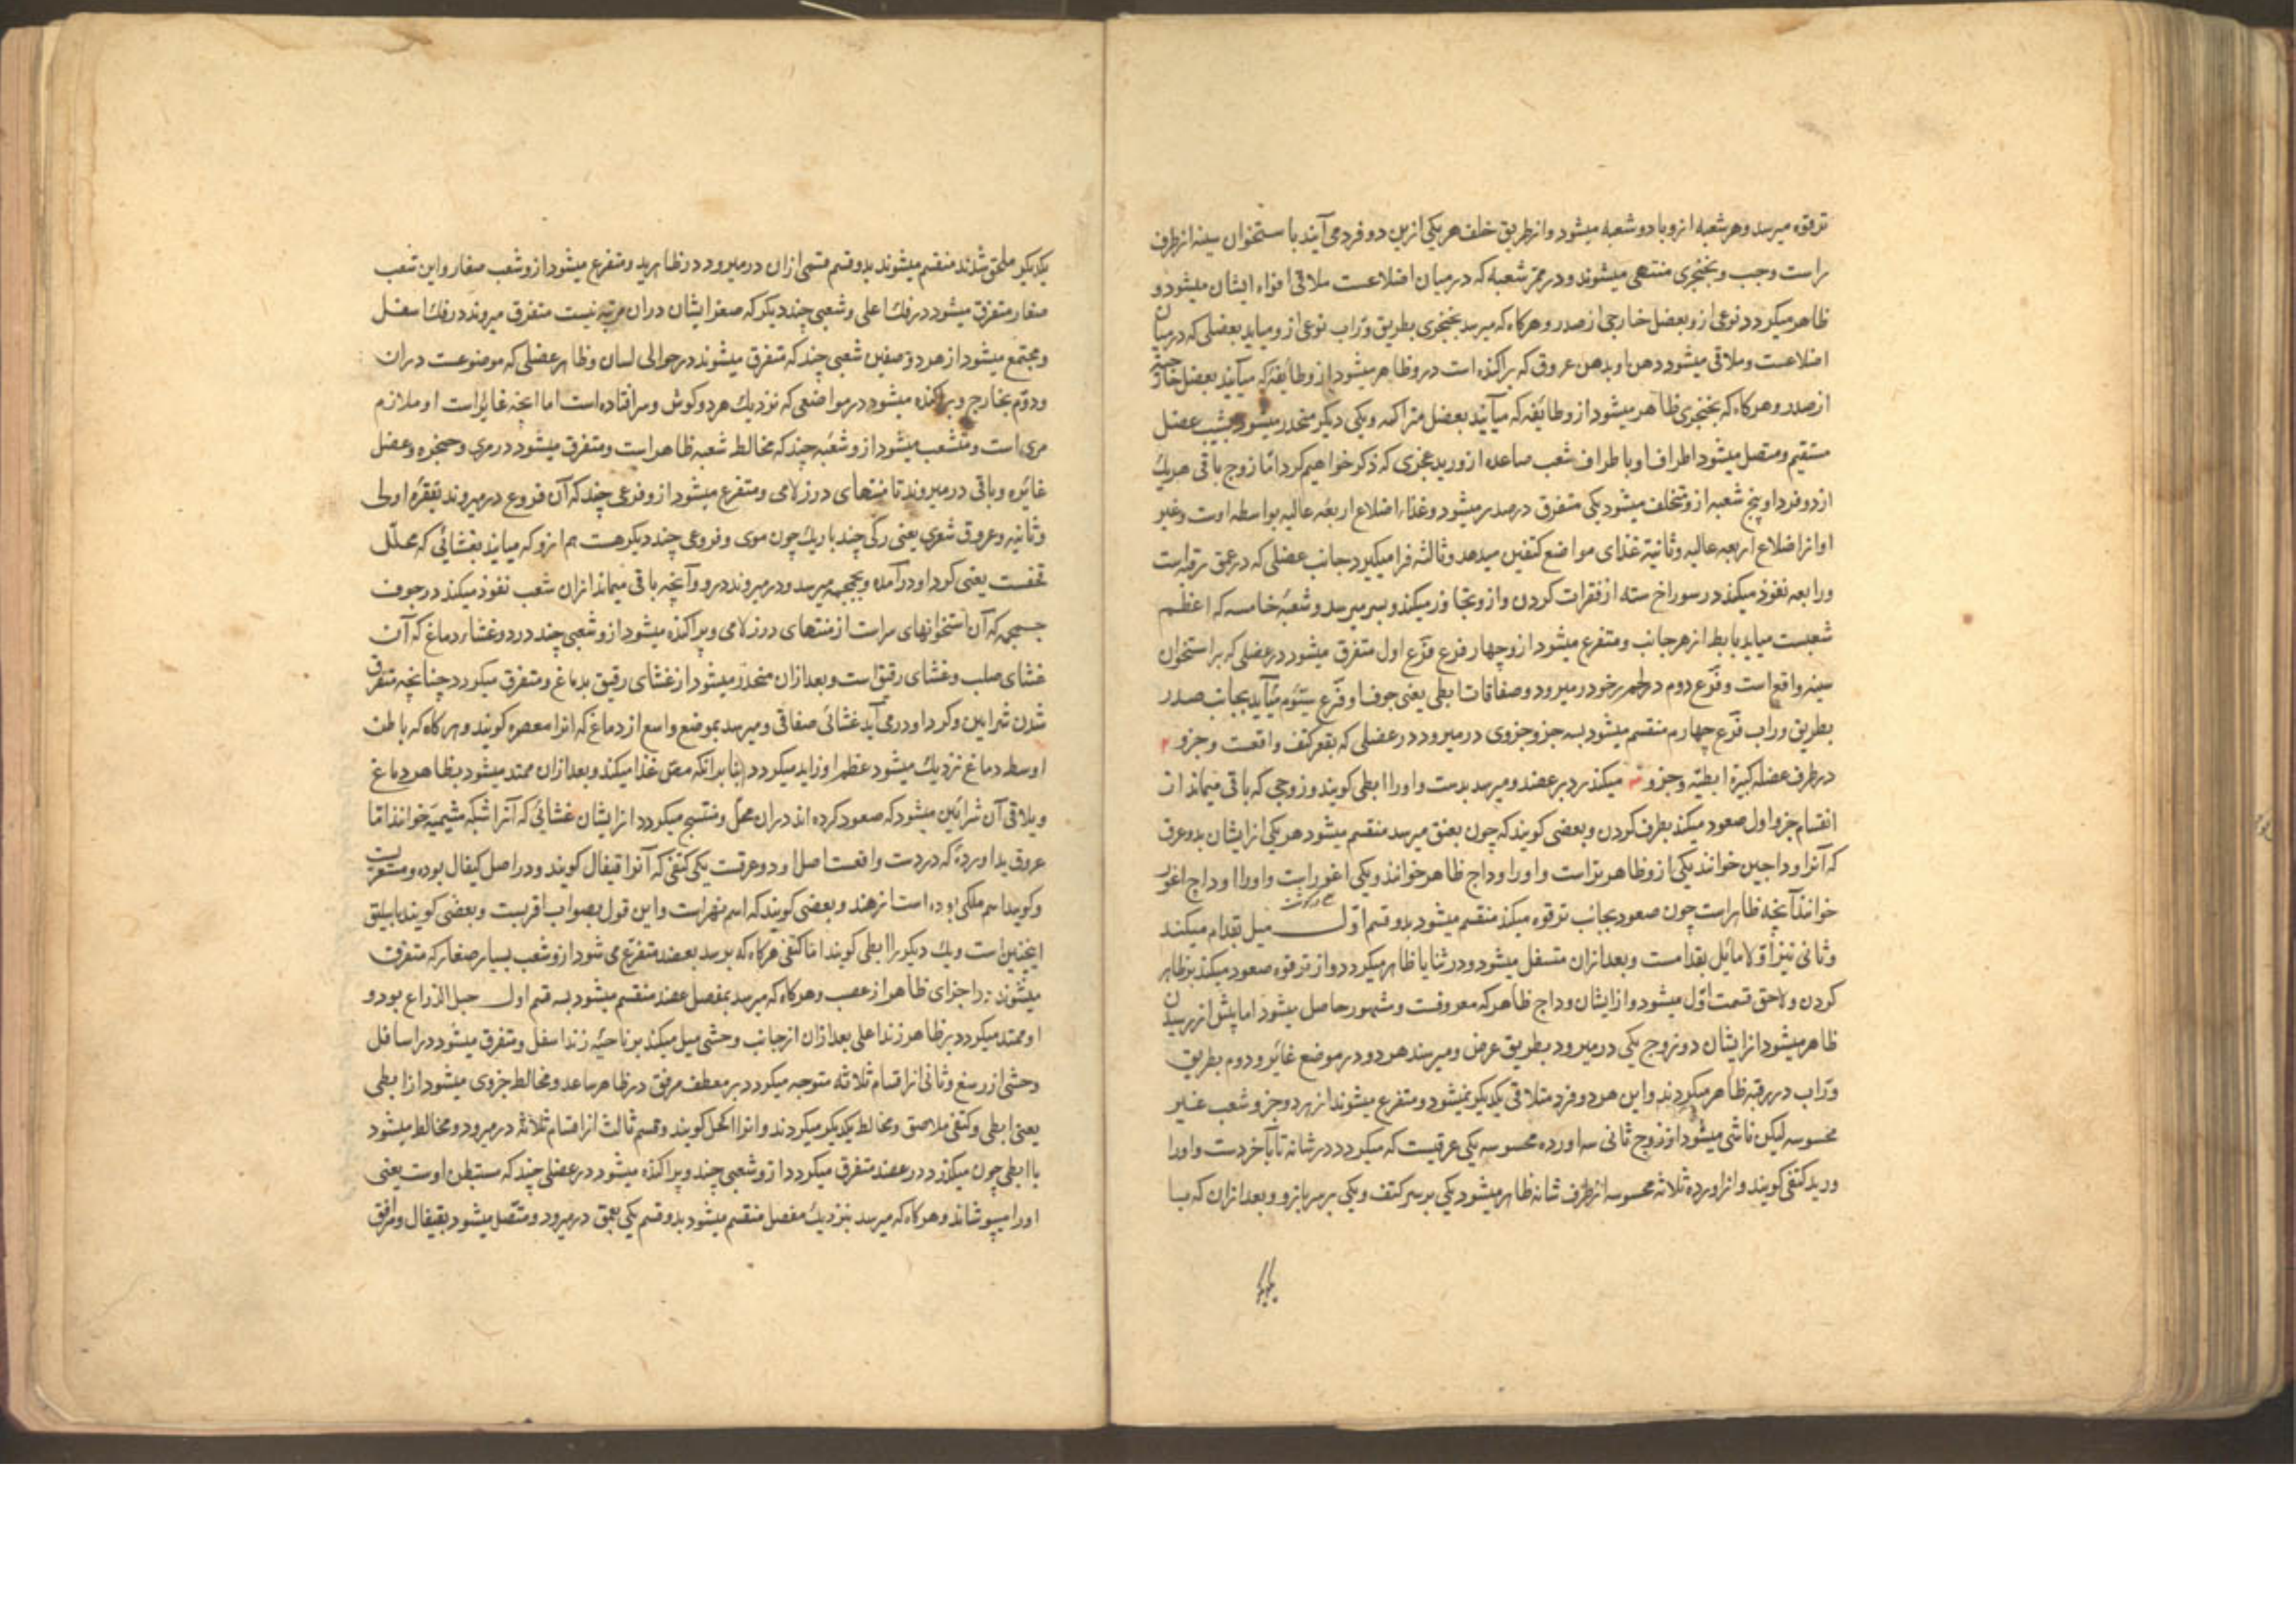 ترقوه میرسد و هر شعبه ازو با دو شعبه میشود و از طریق خلف هر یکی ازین دو فرد می آیند با ستخوان سینه از طرف
راست و چپ و بخنجری منتهی میشوند و در ممر شعبه که در میان اضلاعست ملاقی افواه ایشان میشود و
ظاهر میکردد نوعی ازو بعضل خارجی از صدر و هرکاه که میرسد بخنجری بطریق وراب نوعی ازو میاید بعضلی که در میان
اضلاعست و ملاقی میشود دهن او بدهن عروق که پراکنده است درو ظاهر میشود ازو طائفۀ که میآیند بعضل خارج
از صدر و هرکاه که بخنجری ظاهر میشود ازو طائفه که میآیند بعضل متراکمه و یکی دیکر منحدر میشود عضل
مستقیم و متصل میشود اطراف او باطراف شعب صاعده از ورید عجزی که ذکر خواهیم کرد امّا زوج باقی هر یک
از دو فرد او پنج شعبه ازو متخلف میشود یکی متفرق در صدر میشود و غذاء اضلاع اربعۀ عالیه بواسطه اوست و غیر
او از اضلاع اربعه عالیه و ثانیة غذای مواضع کتفین میدهد و ثالثه فرا میکیرد جانب عضلی که در عمق رقبه است
و رابعه نفوذ میکند در سوراخ سته از فقرات کردن و ازو تجاوز میکند و بسر میرسد و شعبۀ خامسه که اعظم
شعبست میاید بابط از هر جانب و متفرع میشود ازو چهار فرع فرع اول متفرق میشود در عضلی که بر استخوان
سینه واقع است و فرع دوم در لحم رخو در میرود و صفاقات ابطی یعنی جوف او فرع سیّوم میآید بجانب صدر
بطریق وراب فرع چهارم منقسم میشود بسه جزو جزوی در میرود در عضلی که بقعر کتف واقعست و جزو ۲
در طرف عضله کبیرۀ ابطیّه و جزو ۳ میکذرد بر عضد و میرسد بدست و اورا ابطی کویند و زوجی که باقی میماند از
انقسام جزو اول صعود میکند بطرف کردن و بعضی کویند که چون بعنق میرسد منقسم میشود هر یکی از ایشان بدو عرق
که آنرا وداجین خوانند یکی ازو ظاهرتر است و اورا وداج ظاهر خوانند و یکی اغور است و اورا وداج اغور
خوانند آنچه ظاهر است چون صعود بجانب ترقوه میکند منقسم میشود بدو قسم اوّل میل بقدام میکند
و ثانی نیز اوّلا مائل بقدامست و بعد ازان متسفل میشود و در ثنایا ظاهر میکردد و از ترقوه صعود میکند بظاهر
کردن و لاحق قسمت اوّل میشود و از ایشان وداج ظاهر که معروفست و مشهور حاصل میشود اما پیش از رسیدن
ظاهر میشود از ایشان دو زوج یکی در میرود بطریق عرض و میرسند هر دو در موضع غائر و دوم بطریق
وراب در رقبه ظاهر میکردند و این هر دو فرد متلاقی یکدیکر نمیشود و متفرع میشوند از هر دو جزو شعب غیر
محسوسه لیکن ناشی میشود از زوج ثانی سه اورده محسوسه یکی عرقیست که میکردد در شانه تا بآخر دست و اورا
ورید کتفی کویند و از اورده ثلاثه محسوسه از طرف شانه ظاهر میشود یکی بر سر کتف و یکی بر سر بازو و بعد ازان که با
یکدیکر
یکدیکر ملحق شدند منقسم میشوند بدو قسم قسمی ازان در میرود در ظاهر ید و متفرع میشود ازو شعب صغار و این شعب
صغار متفرق میشود در فک اعلی و شعبی چند دیکر که صغر ایشان دران مرتبه نیست متفرق میروند در فک اسفل
و مجتمع میشود از هر دو صفین شعبی چند که متفرق میشوند در حوالی لسان و ظاهر عضلی که موضوعست دران
و دوّم بخارج و پراکنده میشود در مواضعی که نزدیک هر دو کوش و سر افتاده است اما انچه غایر است او ملازم
مری است و متشعب میشود ازو شعبۀ چند که مخالط شعبه ظاهر است و متفرق میشود در مری و حنجره و عضل
غائره و باقی در میروند تا منتهای درز لامی و متفرع میشود ازو فرعی چند که آن فروع در میروند بفقرۀ اولی
و ثانیه و عروق شعری یعنی رکی چند باریک چون موی و فروعی چند دیکر هست هم ازو که میایند بغشائی که مجلّل
قحفست یعنی کرد او در آمده و بجمجمه میرسد و در میروند درو و آنچه باقی میماند ازان شعب نفوذ میکند در جوف
جمجمه که آن استخوانهای سر است از منتهای درز لامی و پراکنده میشود ازو شعبی چند در دو غشاء دماغ که آن
غشای صلب و غشای رقیق است و بعد ازان منحدر میشود از غشای رقیق بدماغ و متفرق میکردد چنانچه متفرق
شدن شرایین و کرد او در می آید غشائی صفاقی و میرسد بموضع واسع از دماغ که انرا معصره کویند و هرکاه که باطن
اوسط دماغ نزدیک میشود عظم او زاید میکردد بنا برانکه مصّ غذا میکند و بعد ازان ممتد میشود بظاهر دماغ
و یلاقی آن شرائین میشود که صعود کرده اند دران محل و منتسج میکردد از ایشان غشائی که آنرا شبکه مشیمیّه خوانند امّا
عروق ید اوردۀ که در دست واقعست اصل او دو عرقست یکی کتفی که آنرا قیفال کویند و در اصل کیفال بوده و معربست
و کویند اسم ملکی بوده است از هند و بعضی کویند که اسم نهر است و این قول بصواب اقربست و بعضی کویند باسلیق
اینچنین است و یک دیکر را ابطی کویند اما کتفی هرکاه که برسد بعضد متفرع می شود ازو شعب بسیار صغار که متفرق
میشوند در اجزای ظاهر از عصب و هرکاه که میرسد بمفصل عضد منقسم میشود بسه قسم اول حبل الذراع بود و
او ممتد میکردد بر ظاهر زند اعلی بعد ازان از جانب وحشی میل میکند بر ناحیۀ زند اسفل و متفرق میشود در اسافل
وحشی از رسغ و ثانی از اقسام ثلاثه متوجه میکردد بر معطف مرفق در ظاهر ساعد و مخالط جزوی میشود از ابطی
یعنی ابطی و کتفی ملاصق و مخالط یکدیکر میکردند و انرا اکحل کویند و قسم ثالث از اقسام ثلاثه در میرود و مخالط میشود
با ابطی چون میکذرد در عضد متفرق میکردد ازو شعبی چند و پراکنده میشود در عضلی چند که مستبطن اوست یعنی
اورا میپوشاند و هرکاه که میرسد بنزدیک مفصل منقسم میشود بدو قسم یکی بعمق در میرود و متصل میشود بقیفال و مرافق